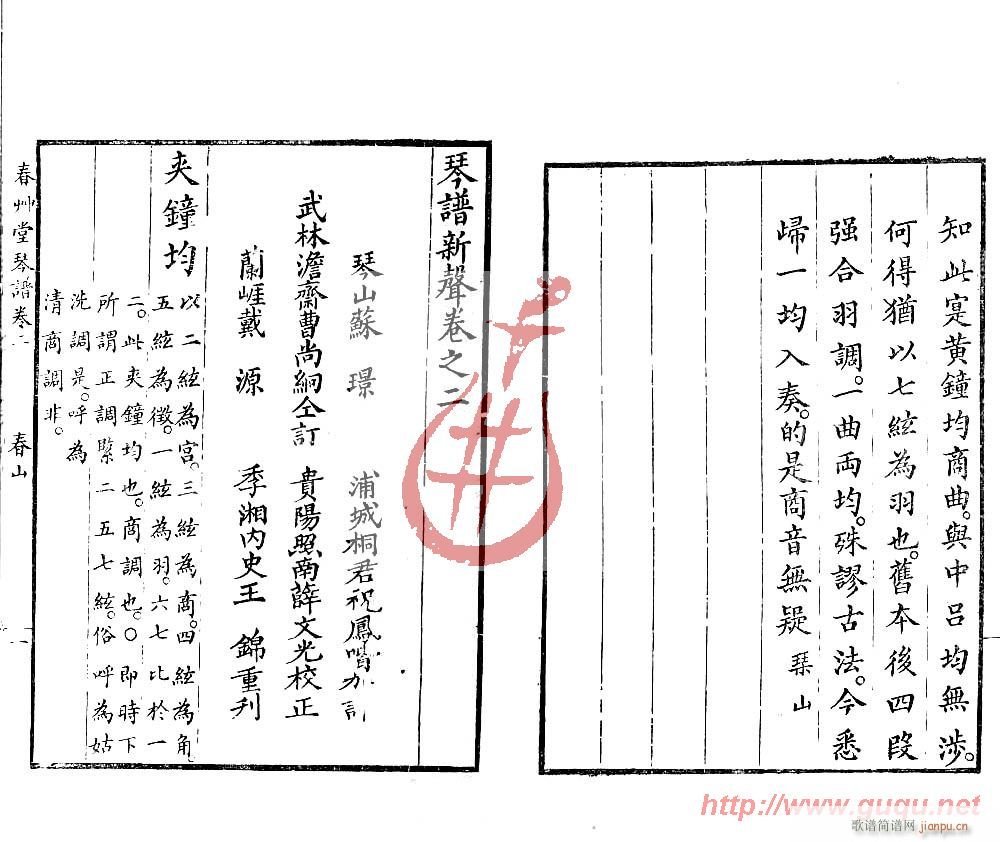 知此寔黃鐘均商曲。與中呂均無涉。
何得猶以七絃為羽也。舊本後四段
强合羽調。一曲兩均。殊謬古法。今悉
歸一均入奏。的是商音無疑 琹山
琴譜新聲卷之二
琴山蘇 璟 浦城桐君祝鳳喈加訂
武林澹齋曹尚絅仝訂 貴陽照南薛文光校正
蘭崕戴 源 季湘內史王 錦重刋
夾鐘均
以二絃為宮。三絃為商。四絃為角。
五絃為徵。一絃為羽。六七比於一
二。此夾鐘均也。商調也。○即時下
所謂正調緊二五七絃。俗呼為姑
洗調是。呼為
清商調非。
春艸堂琴譜卷二 春山 一
http://www.guqu.net
歌谱简谱网 jianpu.cn